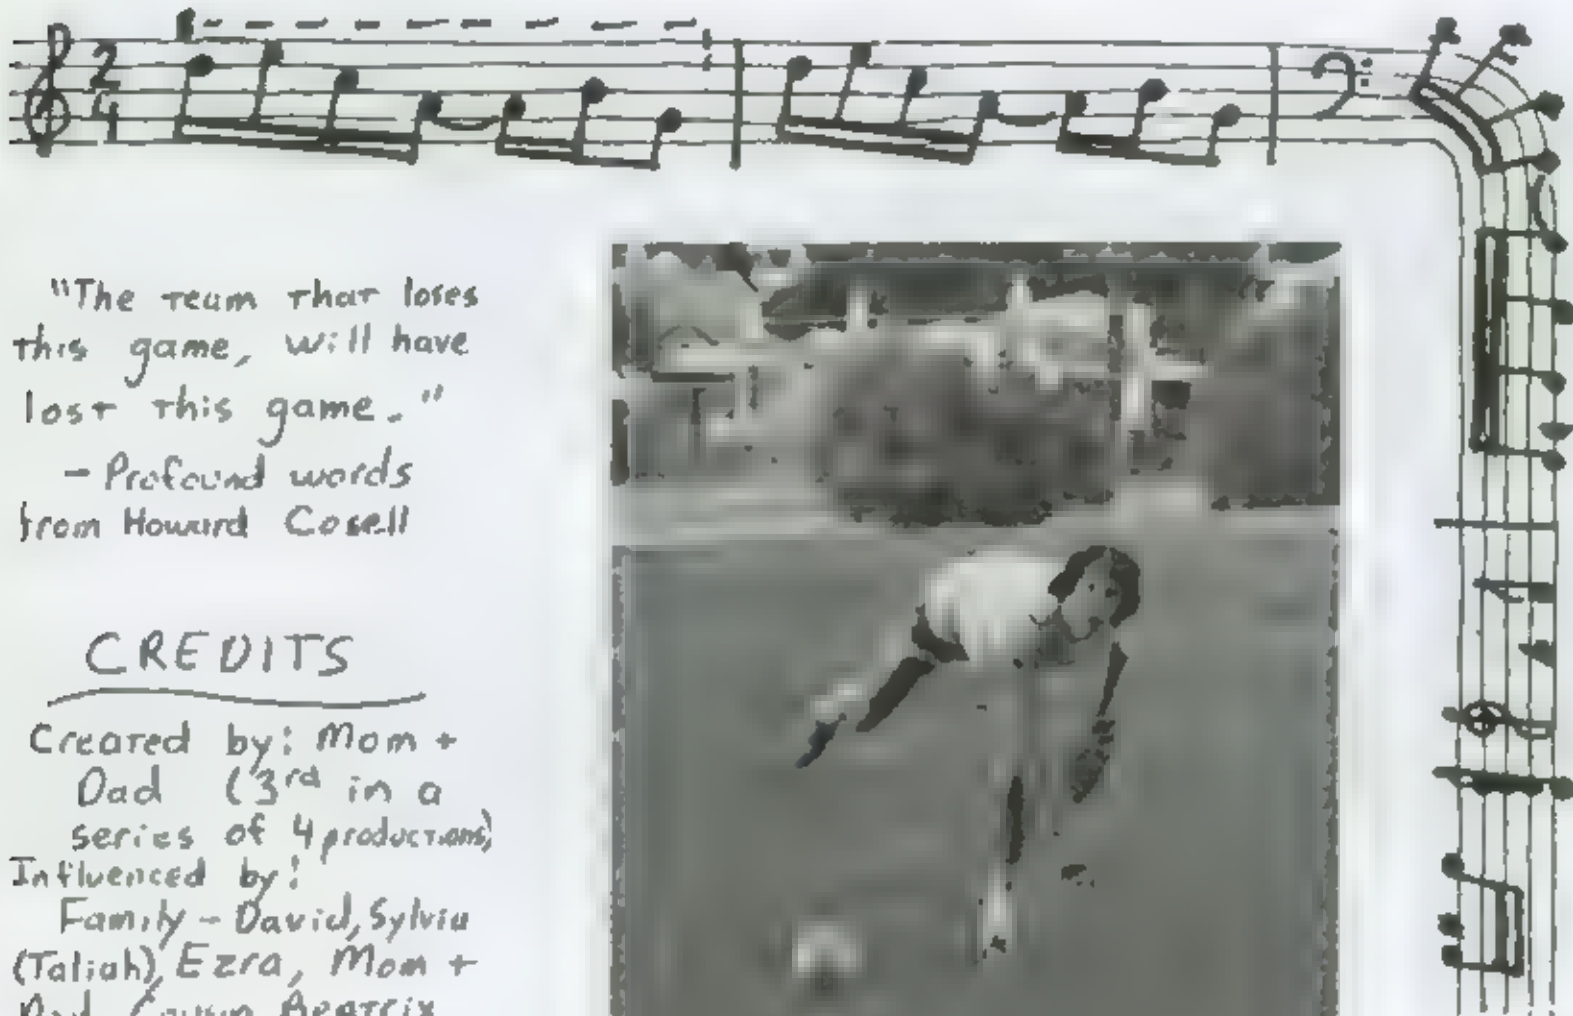 "The team that loses
this game, will have
lost this game."
- Profound words
from Howard Cosell
CREDITS
Created by: Mom +
Dad (3rd in a
series of 4 productions)
Influenced by:
Family - David, Sylvia
(Taliah), Ezra, Mom +
Dad, Cousin Beatrix
2
4